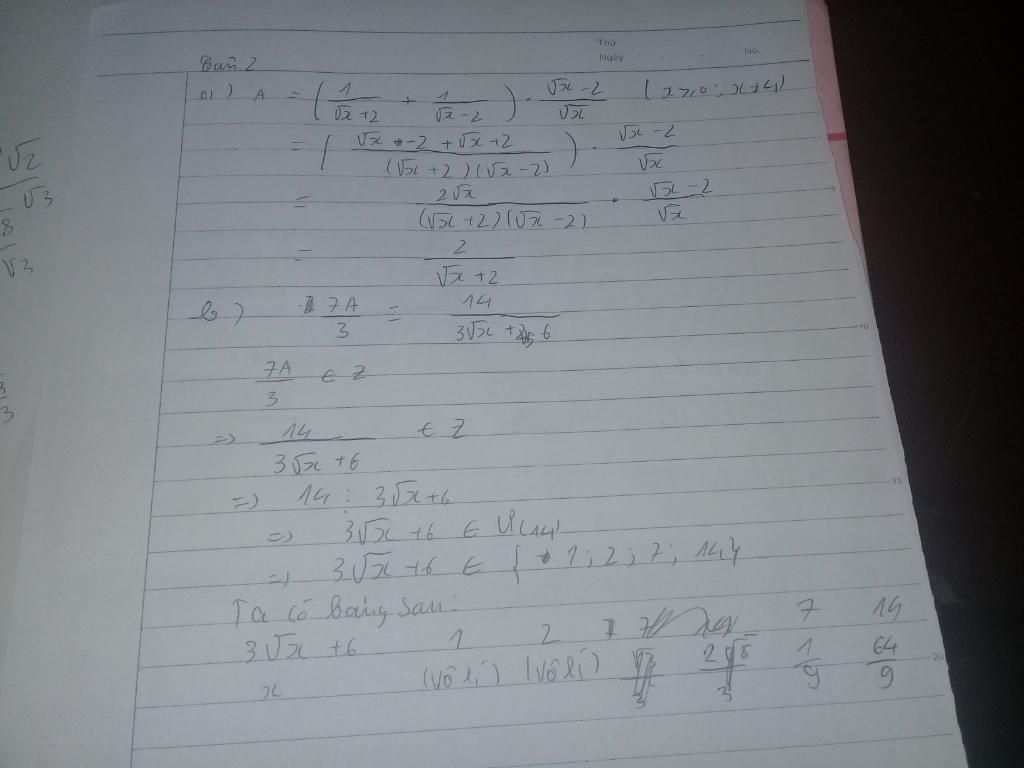 Thứ
Ngày . . No.
Bài 2
a) A = (1/(√x +2) + 1/(√x -2)) · (√x -2)/√x (x>0; x≠4)
= ((√x -2 +√x +2)/((√x +2)(√x -2))) · (√x -2)/√x
= 2√x/((√x +2)(√x -2)) · (√x -2)/√x
= 2/(√x +2)
b) 7A/3 = 14/(3√x + 6)
7A/3 ∈ Z
=> 14/(3√x +6) ∈ Z
=> 14 ⋮ 3√x +6
=> 3√x +6 ∈ Ư(14)
=> 3√x +6 ∈ { 1; 2; 7; 14}
Ta có bảng sau:
3√x +6 1 2 7 14
x (vô lí) (vô lí) 1/9 64/9
√2
√3
8
√3
3
3
10
15
20